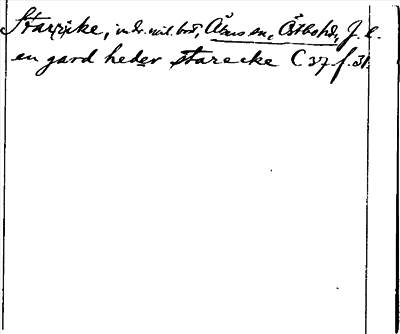 Starrike, indr. mil. bos., Åbus sn, Östbohd, J. l.
en gard heder starecke C 37 f. 31.